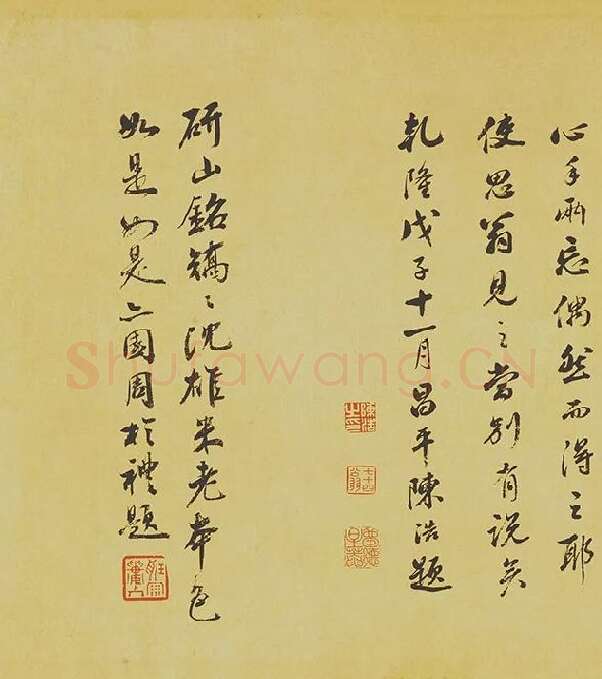 心手兩忘偶然而得之耶
使思翁見之當別有說矣
乾隆戊子十一月昌平陳浩題
陳浩之印
研山銘鐫〻沈雄米老本色
如是如是六園周於禮題
Shufawang.CN